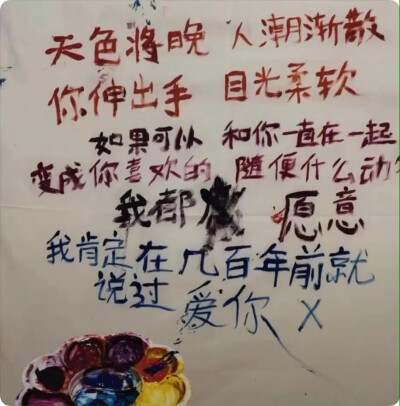 天色将晚 人潮渐散
你伸出手 目光柔软
如果可以 和你一直在一起
变成你喜欢的 随便什么动
我都 愿意
我肯定在几百年前就
说过 爱你 X